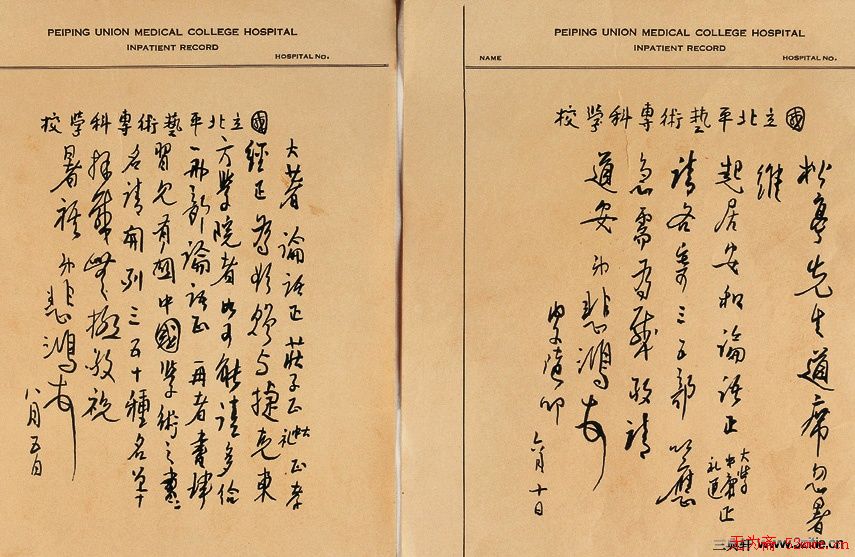 PEIPING UNION MEDICAL COLLEGE HOSPITAL
INPATIENT RECORD
HOSPITAL NO.
國立北平藝術專科學校
大著論語正莊子正正孝
經正為頒與捷克東
方學院者如可能請多給
一兩部論語正再者書肆
習見有關中國學術之書
名請開列三五十種名單
拜敬祝
暑祺 弟悲鴻
八月五日
PEIPING UNION MEDICAL COLLEGE HOSPITAL
INPATIENT RECORD
NAME
HOSPITAL NO.
國立北平藝術專科學校
松亭先生道席忽暑
維
起居安和論語正
大學
中庸正
礼運
請各寄三五部以應
急需為感敬請
道安弟悲鴻
隨叩 六月十日